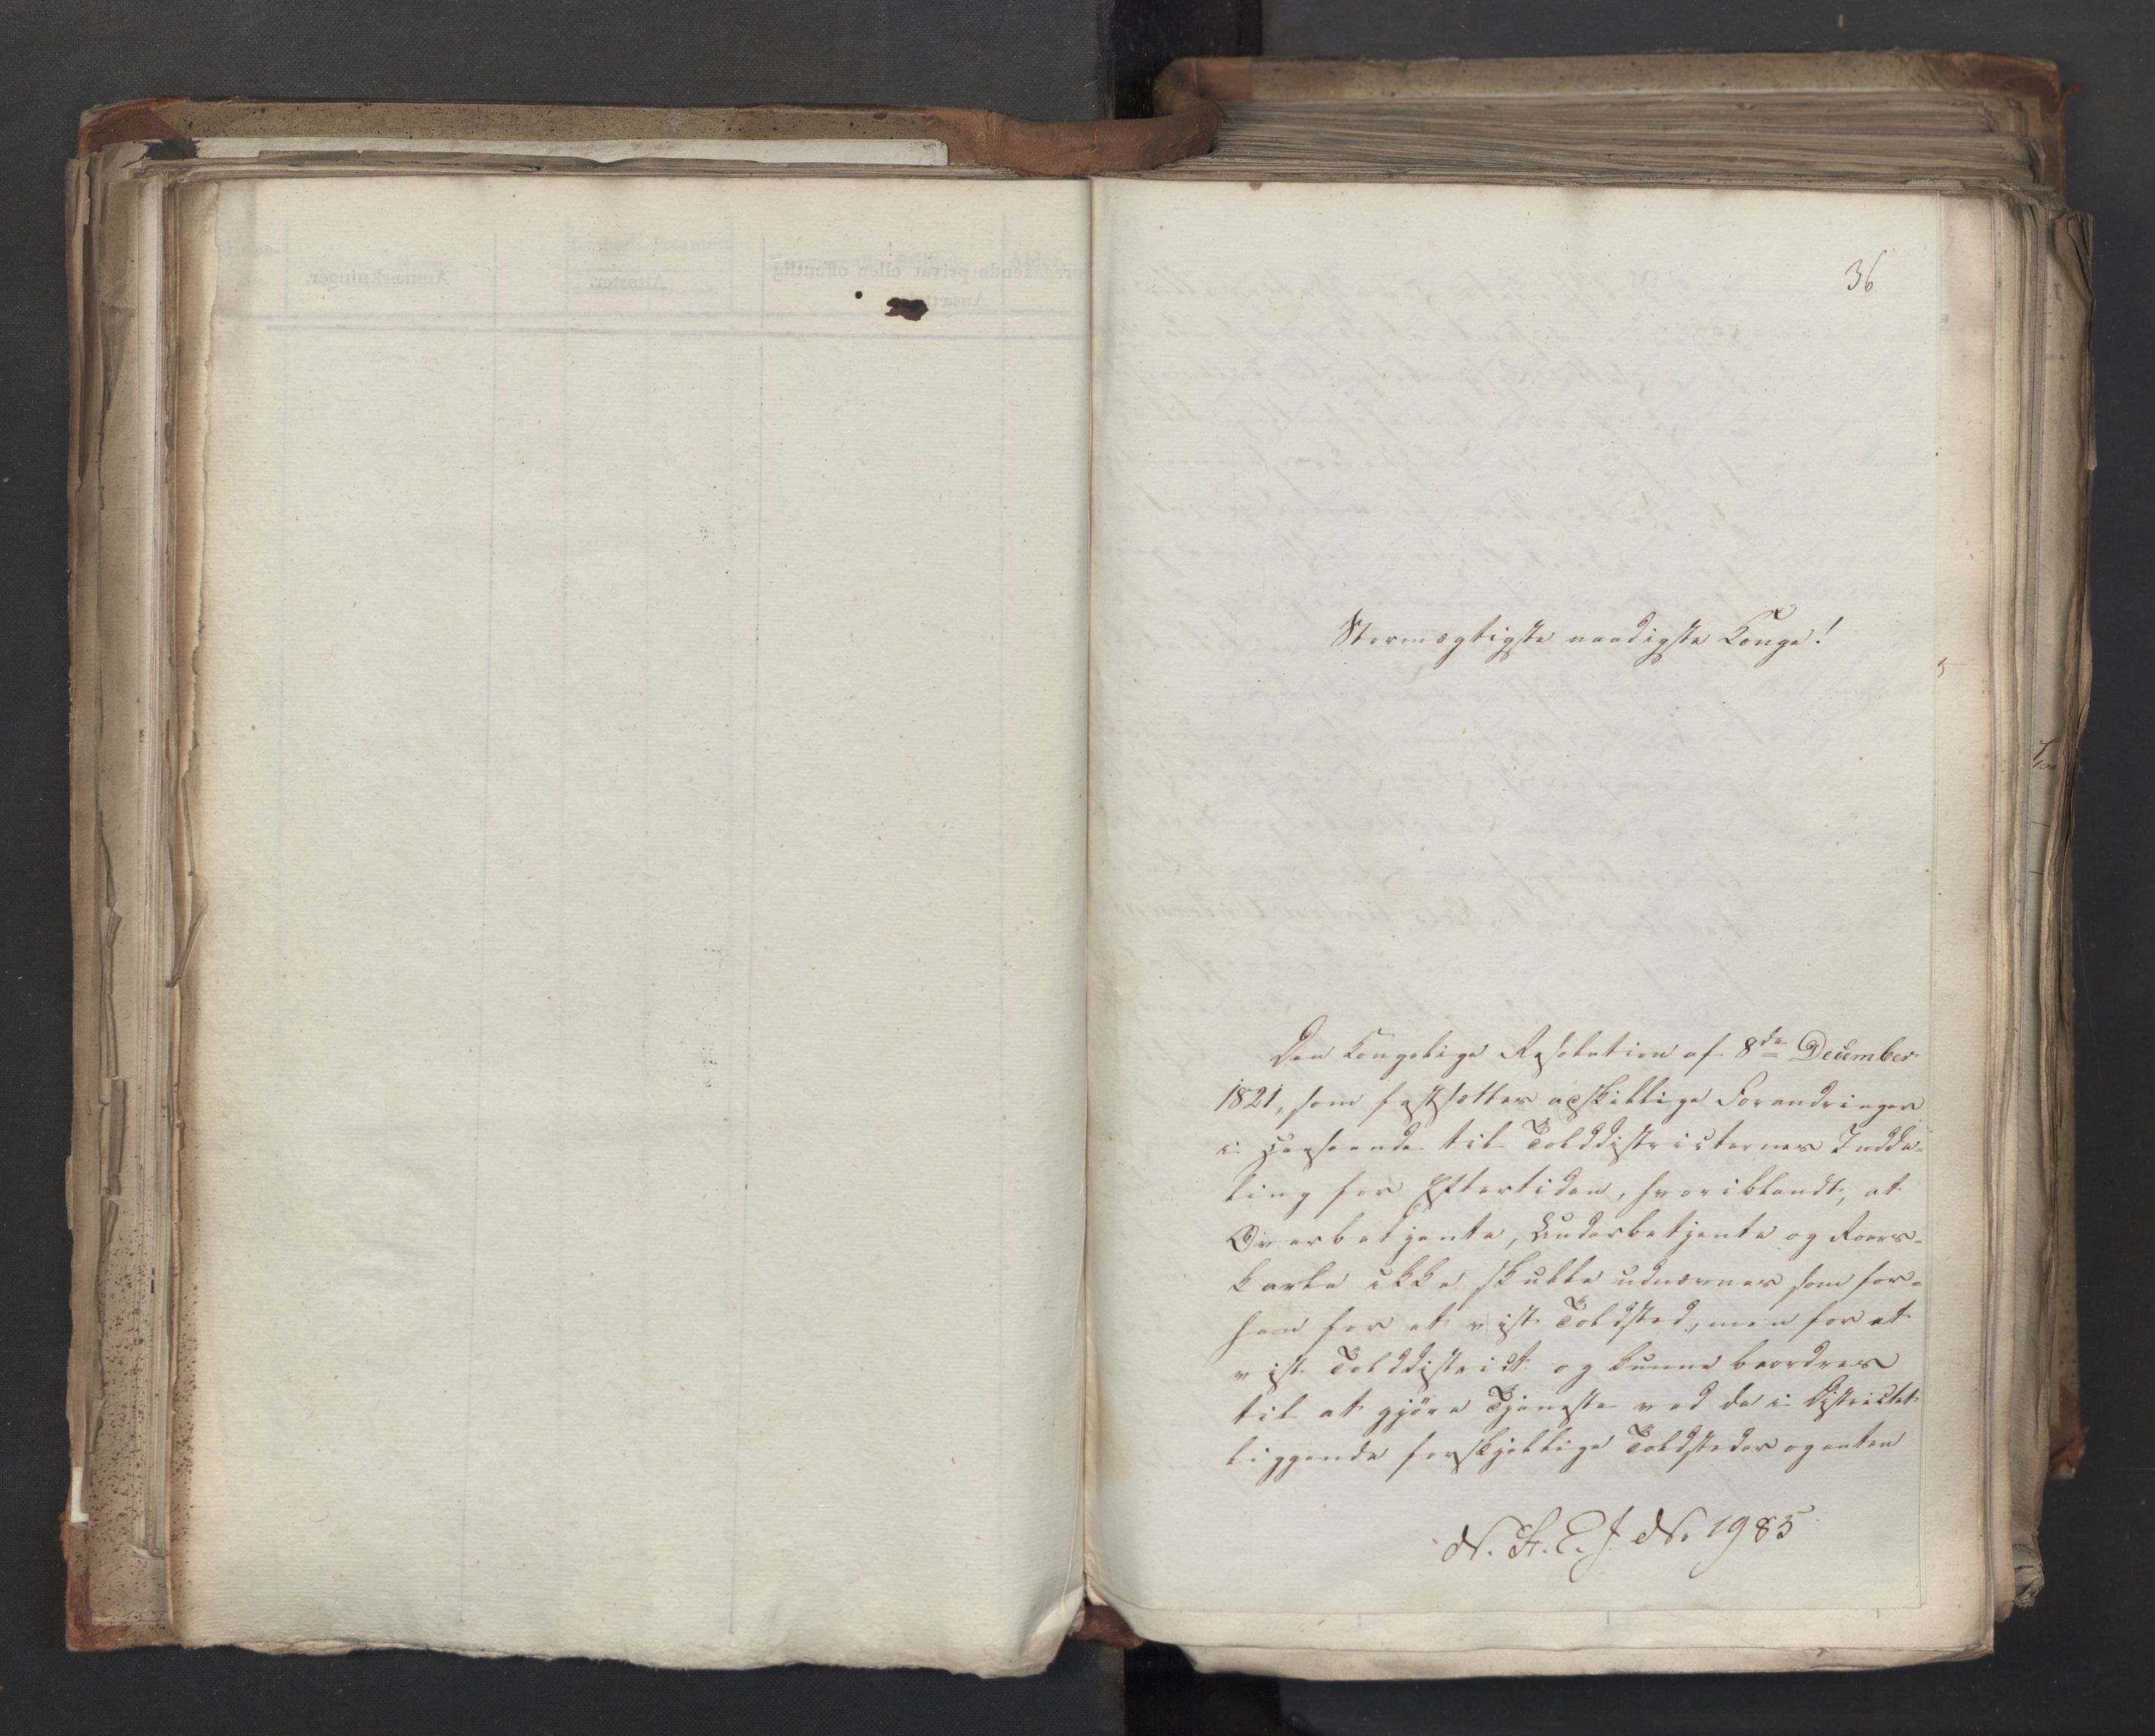 36
Stormægtigste naadigste Konge!
Den Kongelige Resolution af 8de December
1821, som fastsætter adskillige Forandringer
i Henseende til Tolddistricternes Indde-
ling for Eftertiden, hvoriblandt, at
Overbetjente, Underbetjente og Roers-
karle ikke skulle udnævnes som for-
hen for et vist Toldsted, men for et
vist Tolddistrict og kunne beordres
til at gjöre Tjeneste ved de i Districtet
liggende forskjellige Toldsteder og enten
N. St. E. J. No 1985